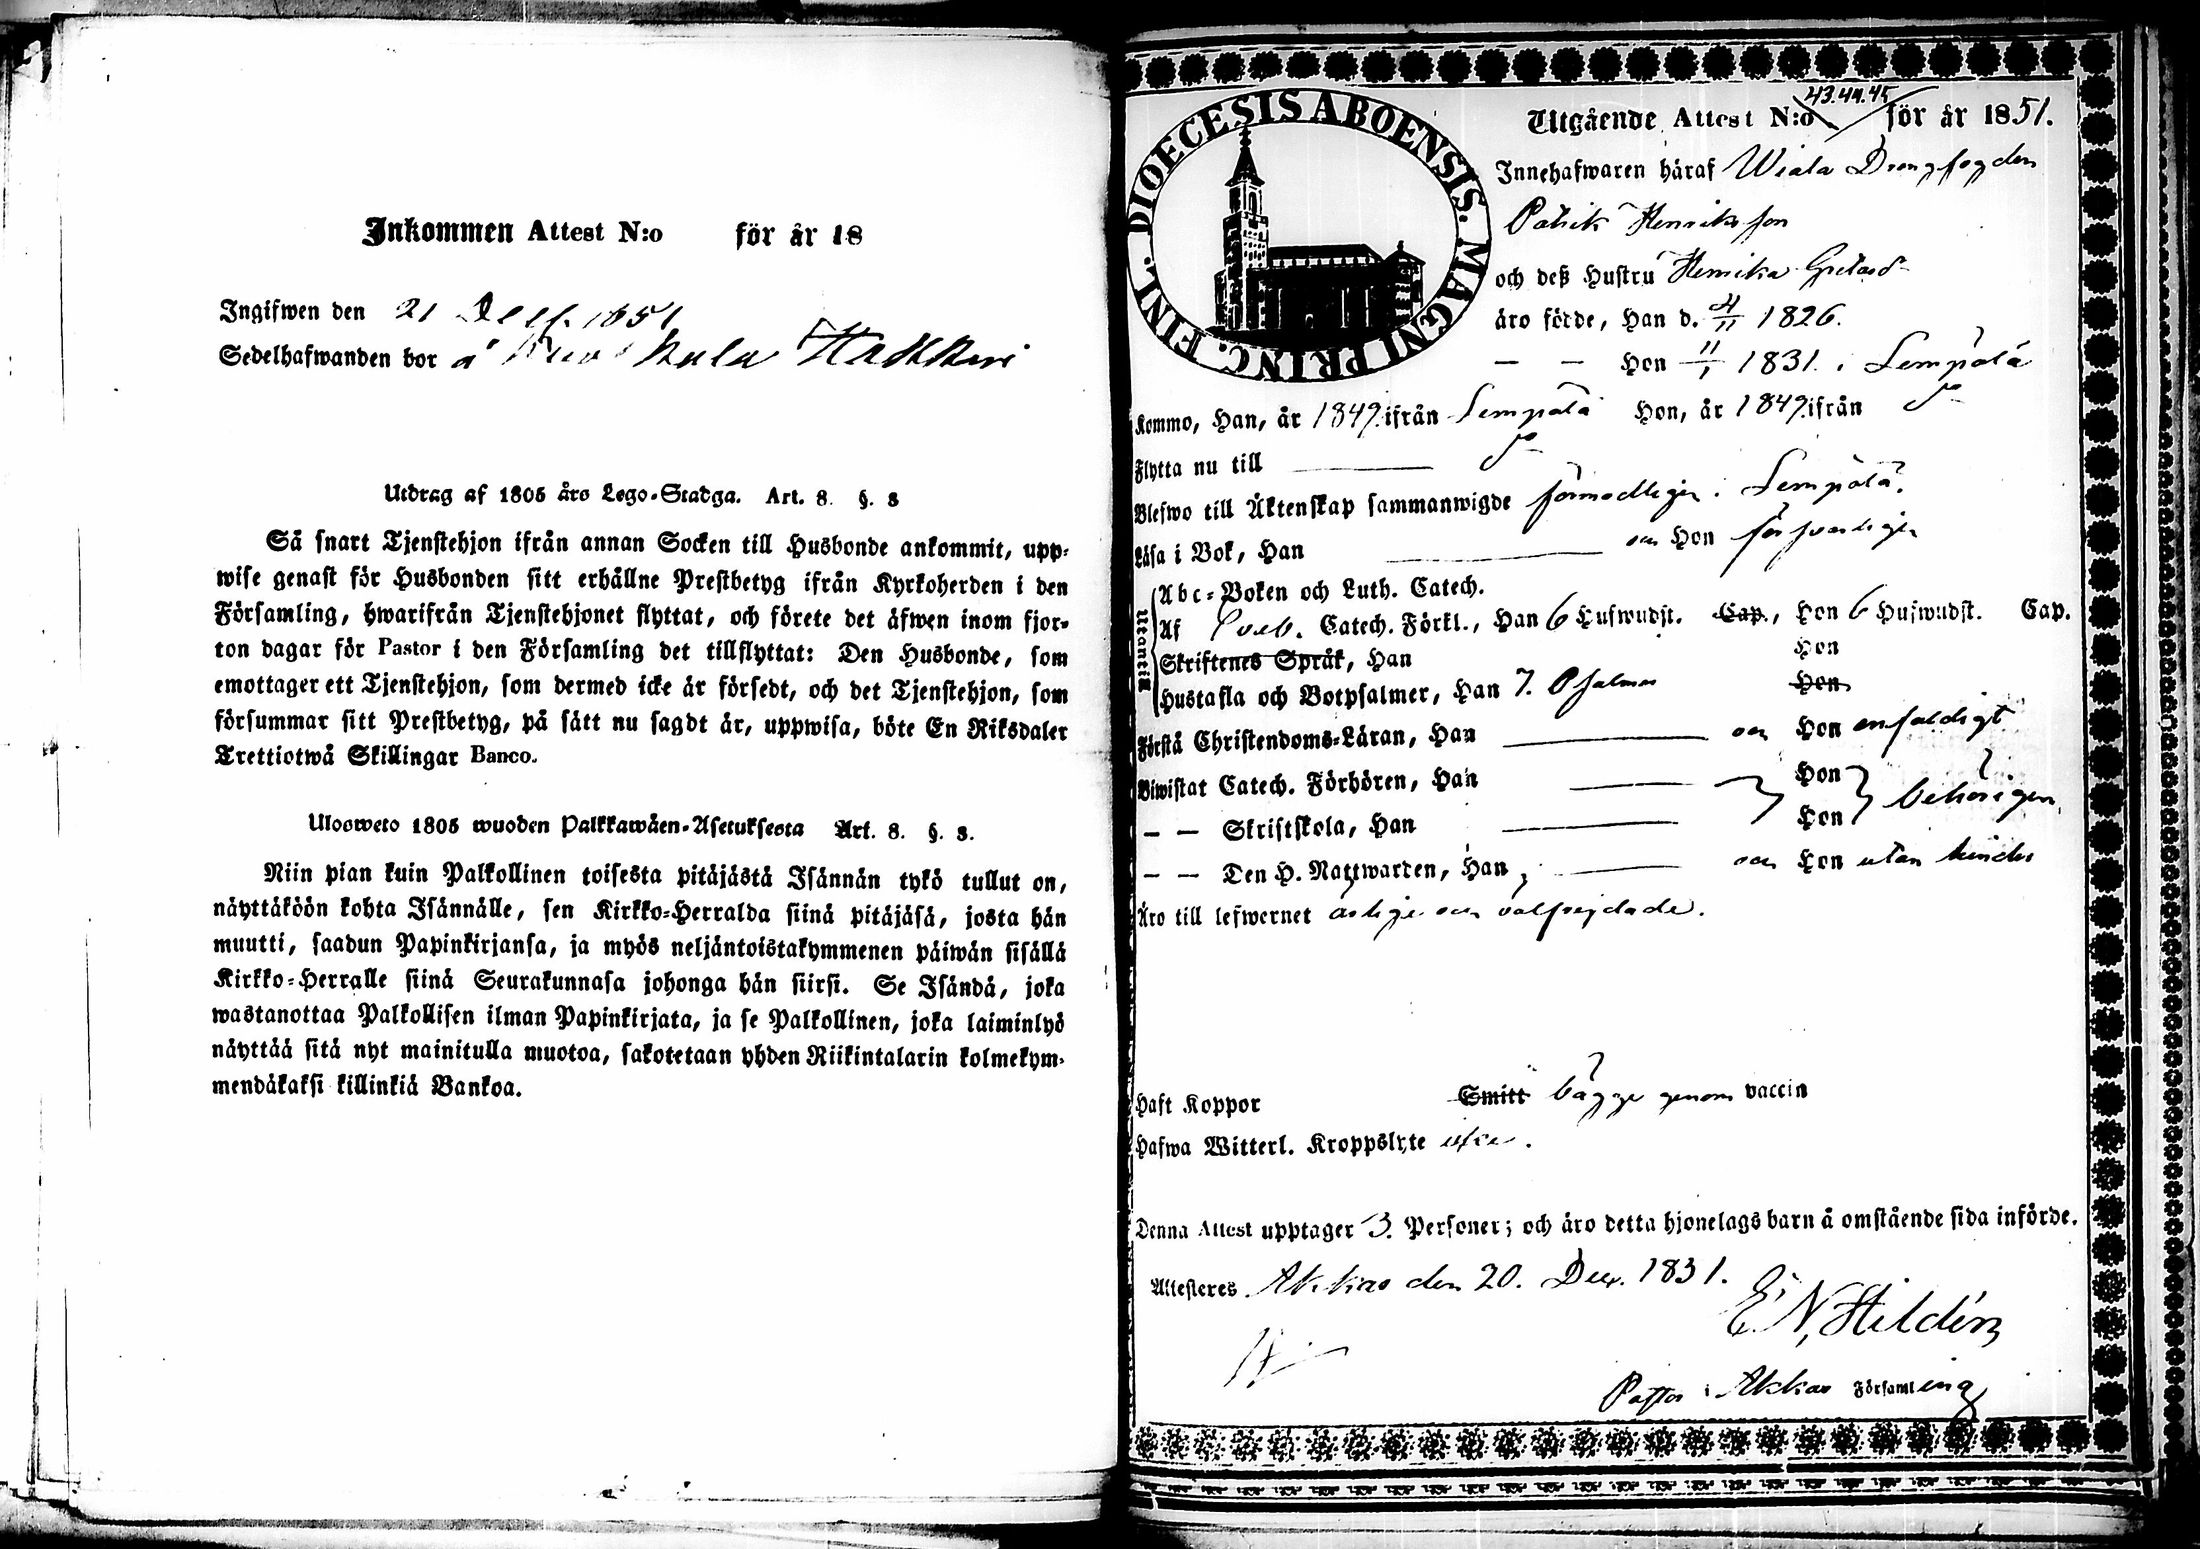 Inkommen Attest N:o för år 18
Ingifwen den 21 Dec. 1851
Sedelhafwanden bor å Kula Hakkari
Utdrag af 1805 års Lego-Stadga. Art. 8. §. 3
Så snart Tjenstehjon ifrån annan Socken till Husbonde ankommit, upp-
wise genast för Husbonden sitt erhållne Prestbetyg ifrån Kyrkoherden i den
Församling, hwarifrån Tjenstehjonet flyttat, och förete det äfwen inom fjor-
ton dagar för Pastor i den Församling det tillflyttat: Den Husbonde, som
emottager ett Tjenstehjon, som dermed icke är försedt, och det Tjenstehjon, som
försummar sitt Prestbetyg, på sätt nu sagdt är, uppwisa, böte En Riksdaler
Trettiotwå Skillingar Banco.
Ulosweto 1805 wuoden Palkkawäen-Asetuksesta Art. 8. §. 3.
Niin pian kuin Palkollinen toisesta pitäjästä Isännän tykö tullut on,
näyttäköön kohta Isännälle, sen Kirkko-Herralda siinä pitäjäsä, josta hän
muutti, saadun Papinkirjansa, ja myös neljäntoistakymmenen päiwän sisällä
Kirkko-Herralle siinä Seurakunnasa johonga hän siirsi. Se Isändä, joka
wastanottaa Palkollisen ilman Papinkirjata, ja se Palkollinen, joka laiminlyö
näyttää sitä nyt mainitulla muotoa, sakotetaan yhden Riikintalarin kolmekym-
mendäkaksi killinkiä Bankoa.
DIOECESIS ABOENSIS. MAGNI PRINC. FINL.
Utgående Attest N:o 43.44.45 för år 1851.
Innehafwaren häraf Wiala Drengfogden
Patrik Henriksson
och deß Hustru Henrika Gretasdr
äro födde, Han d. 4/11 1826.
— — Hon 11/1 1831. i Lempälä
Kommo, Han, år 1849. ifrån Lempälä Hon, år 1849. ifrån dº
Flytta nu till — dº
Blefwo till Äktenskap sammanwigde förmodligen i Lempälä.
Läsa i Bok, Han — och Hon försvarligen
Utantill
Abc-Boken och Luth. Catech.
Af Sveb. Catech. Förkl., Han 6 Hufwudst. Cap., Hon 6 Hufwudst. Cap.
Skriftenes Språk, Han Hon
Hustafla och Botpsalmer, Han 7. Psalmer Hon
Förstå Christendoms-Läran, Han — och Hon enfaldigt
Biwistat Catech. Förhören, Han — Hon
— — Skriftskola, Han — Hon behörigen
— — Den H. Nattwarden, Han — och Hon utan hinder
Äro till lefwernet ärlige och välfrejdade.
Haft Koppor Smitt bägge genom vaccin
Hafwa Witterl. Kroppslyte icke.
Denna Attest upptager 3. Personer; och äro detta hjonelags barn å omstående sida införde.
Attesteres Akkas den 20. Dec. 1851.
E. N. Hildén
Pastor i Akkas Församling